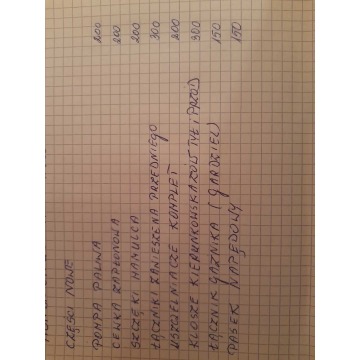 CZĘŚCI NOWE
POMPA PALIWA 200
CEWKA ZAPŁONOWA 200
SZCZĘKI HAMULCA 200
ŁĄCZNIKI ZAWIESZENA PRZEDNIEGO 300
USZCZELNIACZE KOMPLET 200
KLOSZE KIERUNKOWSKAZÓW TYŁ I PRZÓD 300
ŁĄCZNIK GAŹNIKA (GARDZIEL) 150
PASEK NAPĘDOWY 150